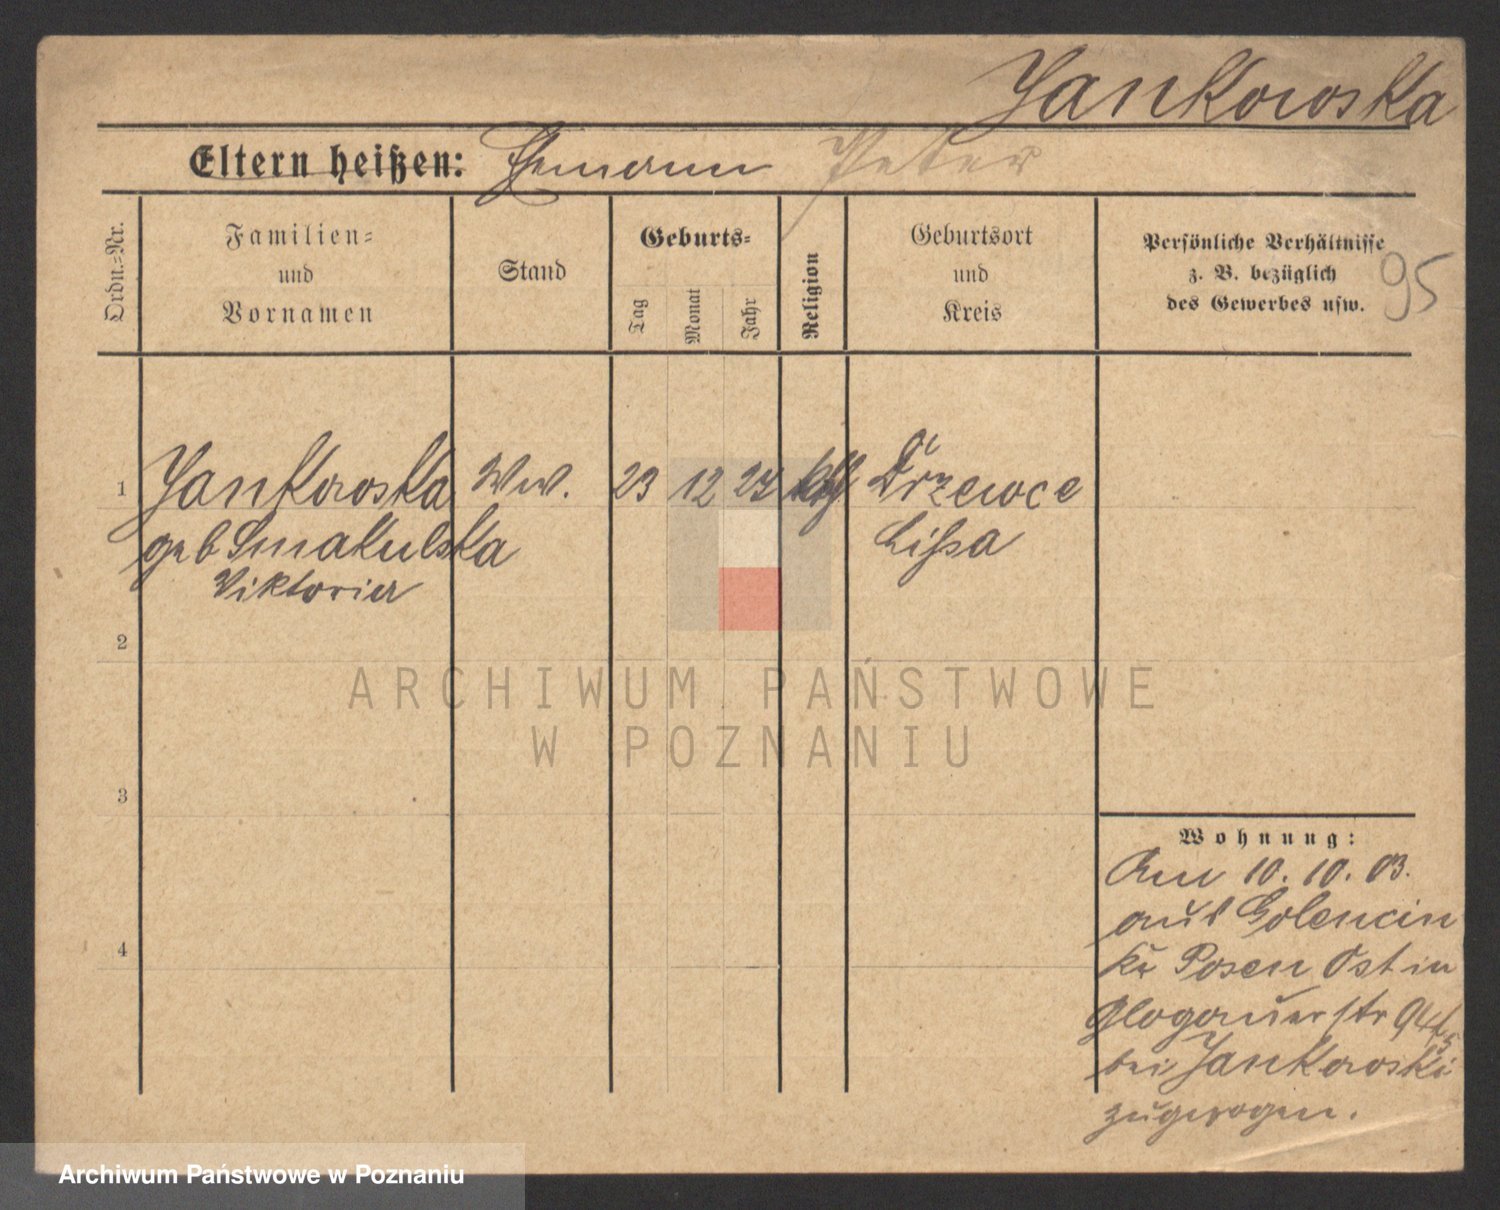 Jankowska
Eltern heißen: Ehemann Peter
Ordn.-Nr.
Familien-
und
Vornamen
Stand
Geburts-
Tag
Monat
Jahr
Religion
Geburtsort
und
Kreis
Persönliche Verhältnisse
z. B. bezüglich
des Gewerbes usw.
95
1 Jankowska Ww. 23 12 27 kth Drzewce
geb Smakulska Lissa
Viktoria
2
3
4
Wohnung:
Am 10. 10. 03.
aus Golencin
Kr Posen Ost in
Glogauerstr 94
bei Jankowski
zugezogen.
ARCHIWUM PAŃSTWOWE
W POZNANIU
Archiwum Państwowe w Poznaniu